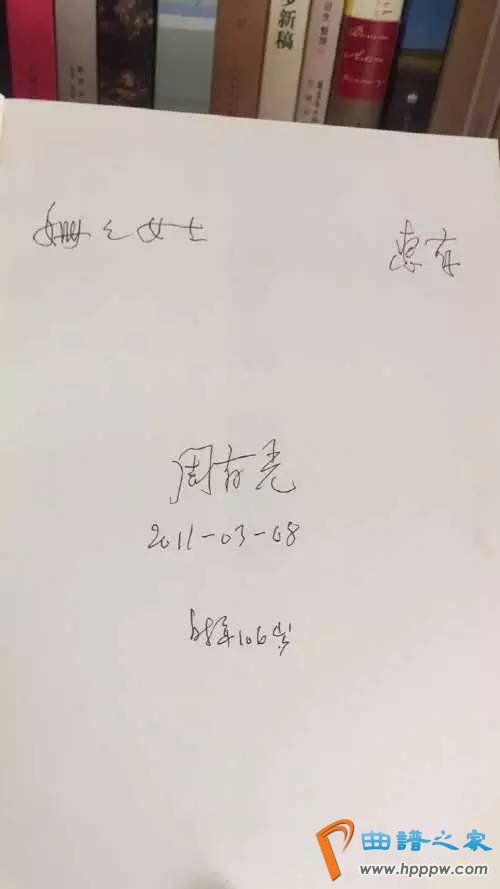 新稿
姗之女士 惠存
周有光
2011-03-08
时年106岁
曲谱之家
www.hppw.com